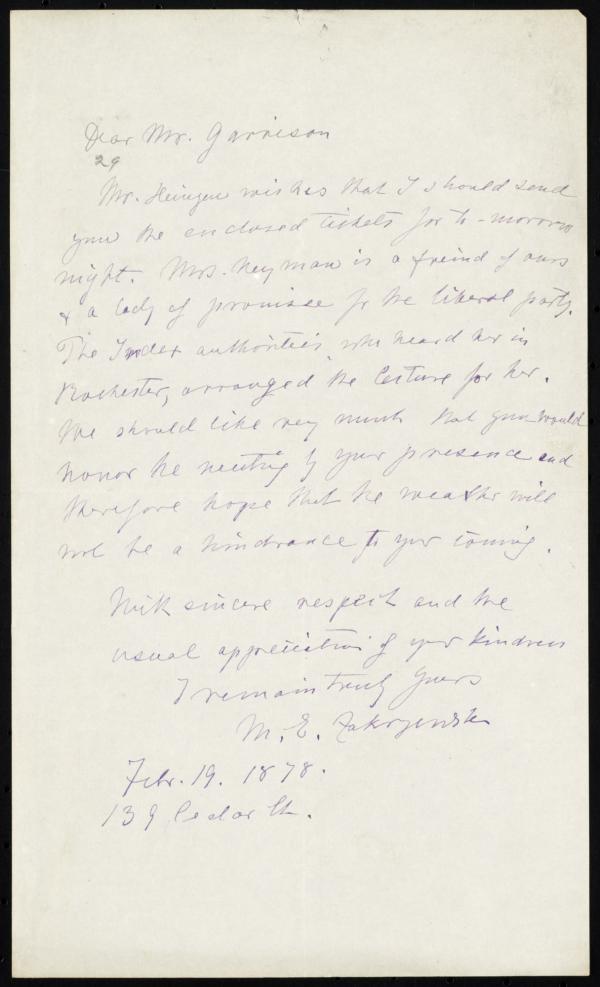 Dear Mr. Garrison
29
Mr. Heinzen wishes that I should send
you the enclosed tickets for to-morrow
night. Mrs. Neyman is a freind of ours
& a lady of promise for the liberal party.
The Index authorities who heard her in
Rochester, arranged the lecture for her.
We should like very much that you would
honor the meeting by your presence and
therefore hope that the weather will
not be a hindrance to your coming.
With sincere respect and the
usual appreciation of your kindness
I remain truly Yours
M. E. Zakrzewska
Febr. 19. 1878.
139 Cedar St.